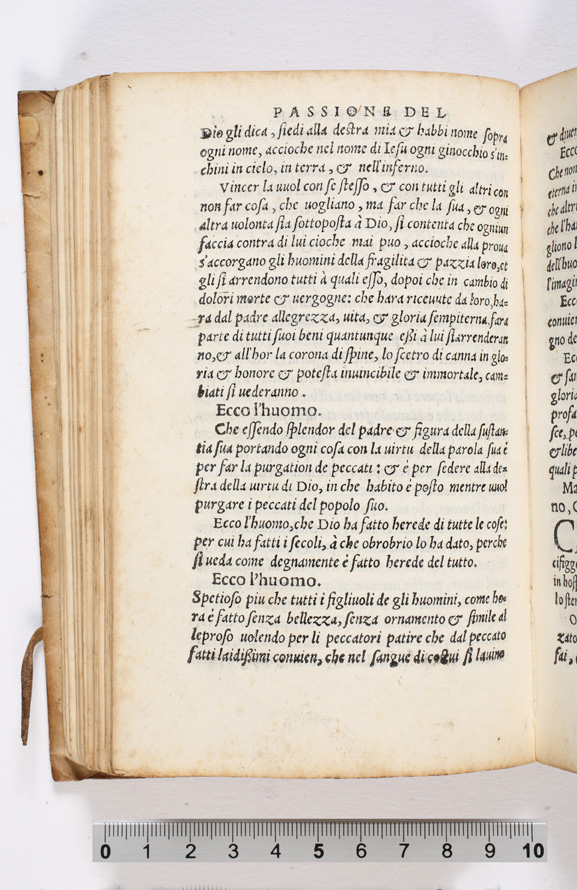 PASSIONE DEL
Dio gli dica, siedi alla destra mia & habbi nome sopra
ogni nome, accioche nel nome di Iesu ogni ginocchio s'in-
chini in cielo, in terra, & nell'inferno.
Vincer la uuol con se stesso, & con tutti gli altri con
non far cosa, che uogliano, ma far che la sua, & ogni
altra uolonta sia sottoposta à Dio, si contenta che ogniun
faccia contra di lui cioche mai puo, accioche alla proua
s'accorgano gli huomini della fragilita & pazzia loro, et
gli si arrendono tutti à quali esso, dopoi che in cambio di
dolori morte & uergogne: che hara riceuute da loro, ha-
ra dal padre allegrezza, uita, & gloria sempiterna, fara
parte di tutti suoi beni quantunque eßi à lui siarrenderan
no, & all'hor la corona di spine, lo scetro di canna in glo-
ria & honore & potesta inuincibile & immortale, cam-
biati si uederanno.
Ecco l'huomo.
Che essendo splendor del padre & figura della sustan-
tia sua portando ogni cosa con la uirtu della parola sua è
per far la purgation de peccati: & è per sedere alla de-
stra della uirtu di Dio, in che habito è posto mentre uuol
purgare i peccati del popolo suo.
Ecco l'huomo, che Dio ha fatto herede di tutte le cose:
per cui ha fatti i secoli, à che obrobrio lo ha dato, perche
si ueda come degnamente è fatto herede del tutto.
Ecco l'huomo.
Spetioso piu che tutti i figliuoli de gli huomini, come ho-
ra è fatto senza bellezza, senza ornamento & simile al
leproso uolendo per li peccatori patire che dal peccato
fatti laidißimi conuien, che nel sangue di costui si lauino
& diuen
Ecco
Che non
eterna in
che altri
che l'ha
gliono l
dell'huo
l'imagin
Ecc
conuien
gno de
Ec
& san
gloria
profa
sce, pe
& libe
quali p
Ma
no, C
C
cifigge
in host
lo sten
O
zato
fai,
0 1 2 3 4 5 6 7 8 9 10